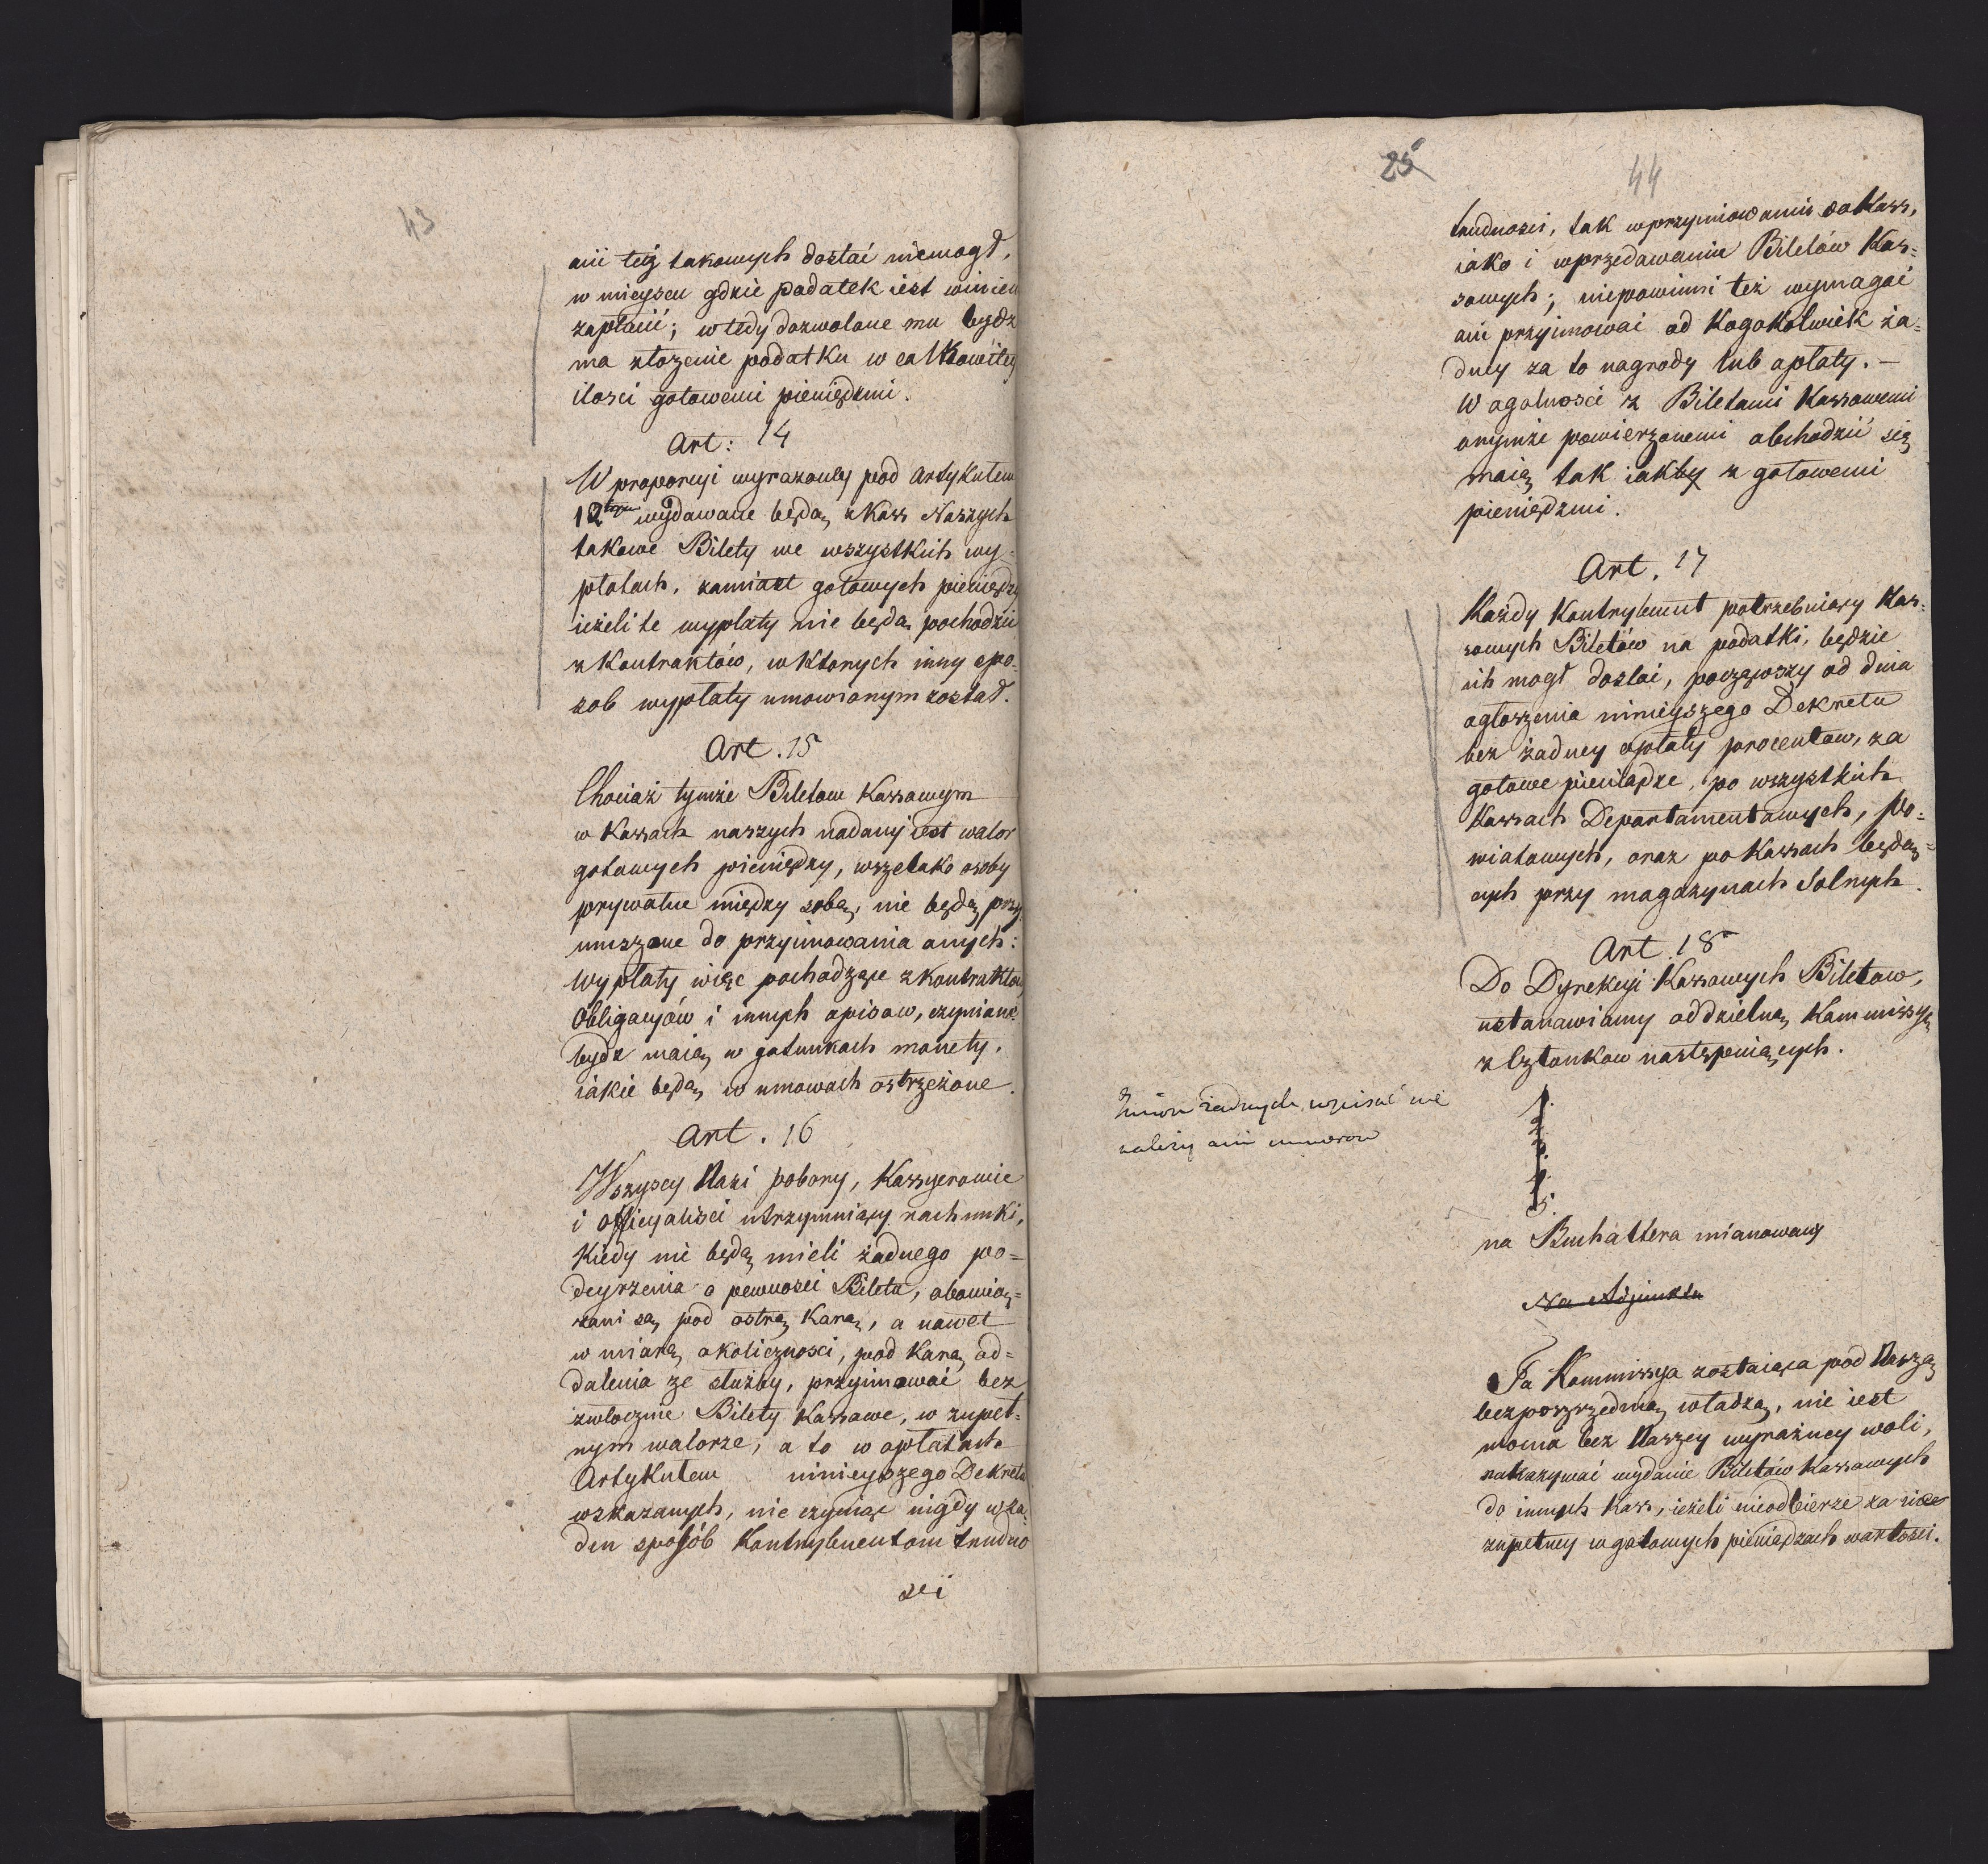 43
ani też takowych dostać niemogł,
w mieyscu gdzie podatek iest winien
zapłacić; wtedy dozwolone mu bydź
ma złożenie podatku w całkowitey
ilosci gotowemi pieniędzmi.
Art: 14
W proporcyi wyrażoney pod Artykułem
12tym wydawane będą z Kass Naszych
takowe Bilety we wszystkich wy=
płatach, zamiast gotowych pieniędzy
ieżeli te wypłaty nie będą pochodzić
z Kontraktów, w których inny spo=
sob wypłaty umowionym został.
Art. 15
Chociaż tymże Biletom Kassowym
w Kassach naszych nadany iest walor
gotowych pieniędzy, wszelako osoby
prywatne między sobą, nie będą przy
muszone do przyimowania onych:
Wypłaty więc pochodzące z kontraktow,
Obligacyów i innych opisow, czynione
bydź maią w gatunkach monety,
iakie będą w umowach ostrzeżone.
Art. 16
Wszyscy Nasi pobory, Kassyerowie
i officyalisci utrzymuiący rachunki,
Kiedy nie będą mieli żadnego po=
deyrzenia o pewnosci Biletu, obowią=
zani są, pod ostrą Karą, a nawet
w miarę okolicznosci, pod Karą od=
dalenia ze służby, przyimować bez
zwłocznie Bilety Kassowe, w zupeł=
nym walorze, a to w opłatach
Artykułem ninieyszego Dekretu
wskazanych, nie czyniąc nigdy w ża=
den sposób Kontrybuentom trudno
sci
25
44
trudnosci, tak w przyimowaniu do Kass,
iako i w przedawaniu Biletów Kas=
sowych; niepowinni też wymagać
ani przyimować od Kogokolwiek ża=
dney za to nagrody lub opłaty. —
W ogolnosci z Biletami Kassowemi
onymże powierzonemi obchodzić się
maią tak iakby z gotowemi
pieniędzmi.
Art. 17
Każdy Kontrybuent potrzebuiący Kas=
sowych Biletów na podatki, będzie
ich mogł dostać, począwszy od dnia
ogłoszenia ninieyszego Dekretu
bez żadney opłaty procentow, za
gotowe pieniądze, po wszystkich
Kassach Departamentowych, Po=
wiatowych, oraz po Kassach będą=
cych przy magazynach Solnych.
Art. 18
Do Dyrekcyi Kassowych Biletow,
ustanawiamy oddzielną Kommissyą
z Członkow następuiących.
Imion żadnych wpisać nie
należy ani numerow
1.
2.
3.
4.
5.
na Buchaltera mianowany
Na Adjunkta
Ta Kommissya zostaiąca pod Naszą
bezposrzednią władzą, nie iest
mocna bez Naszey wyrażney woli,
nakazywać wydanie Biletów Kassowych
do innych Kass, ieżeli nieodbierze za nie
zupełney w gotowych pieniądzach wartosci.